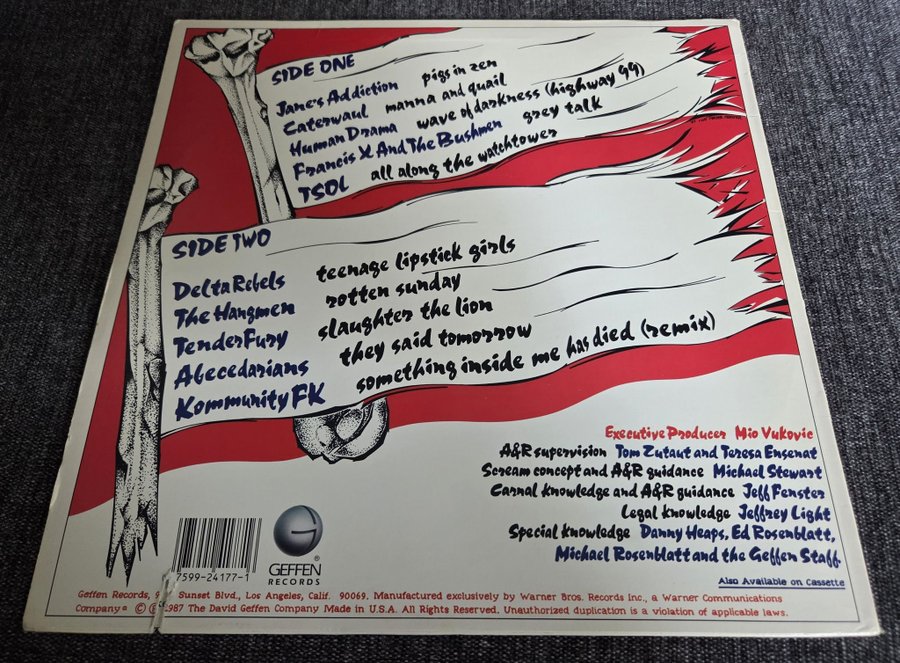 SIDE ONE
Jane's Addiction pigs in zen
Caterwaul manna and quail
Human Drama wave of darkness (highway 99)
Francis X And The Bushmen grey talk
TSOL all along the watchtower
SIDE TWO
Delta Rebels teenage lipstick girls
The Hangmen rotten sunday
Tender Fury slaughter the lion
Abecedarians they said tomorrow
Kommunity FK something inside me has died (remix)
Executive Producer Mio Vukovic
A&R supervision Tom Zutaut and Teresa Ensenat
Scream concept and A&R guidance Michael Stewart
Carnal knowledge and A&R guidance Jeff Fenster
Legal knowledge Jeffrey Light
Special knowledge Danny Heaps, Ed Rosenblatt,
Michael Rosenblatt and the Geffen Staff.
7599-24177-1
GEFFEN
RECORDS
®
Also Available on Cassette
Geffen Records, 9 Sunset Blvd., Los Angeles, Calif. 90069. Manufactured exclusively by Warner Bros. Records Inc., a Warner Communications
Company © 1987 The David Geffen Company Made in U.S.A. All Rights Reserved. Unauthorized duplication is a violation of applicable laws.